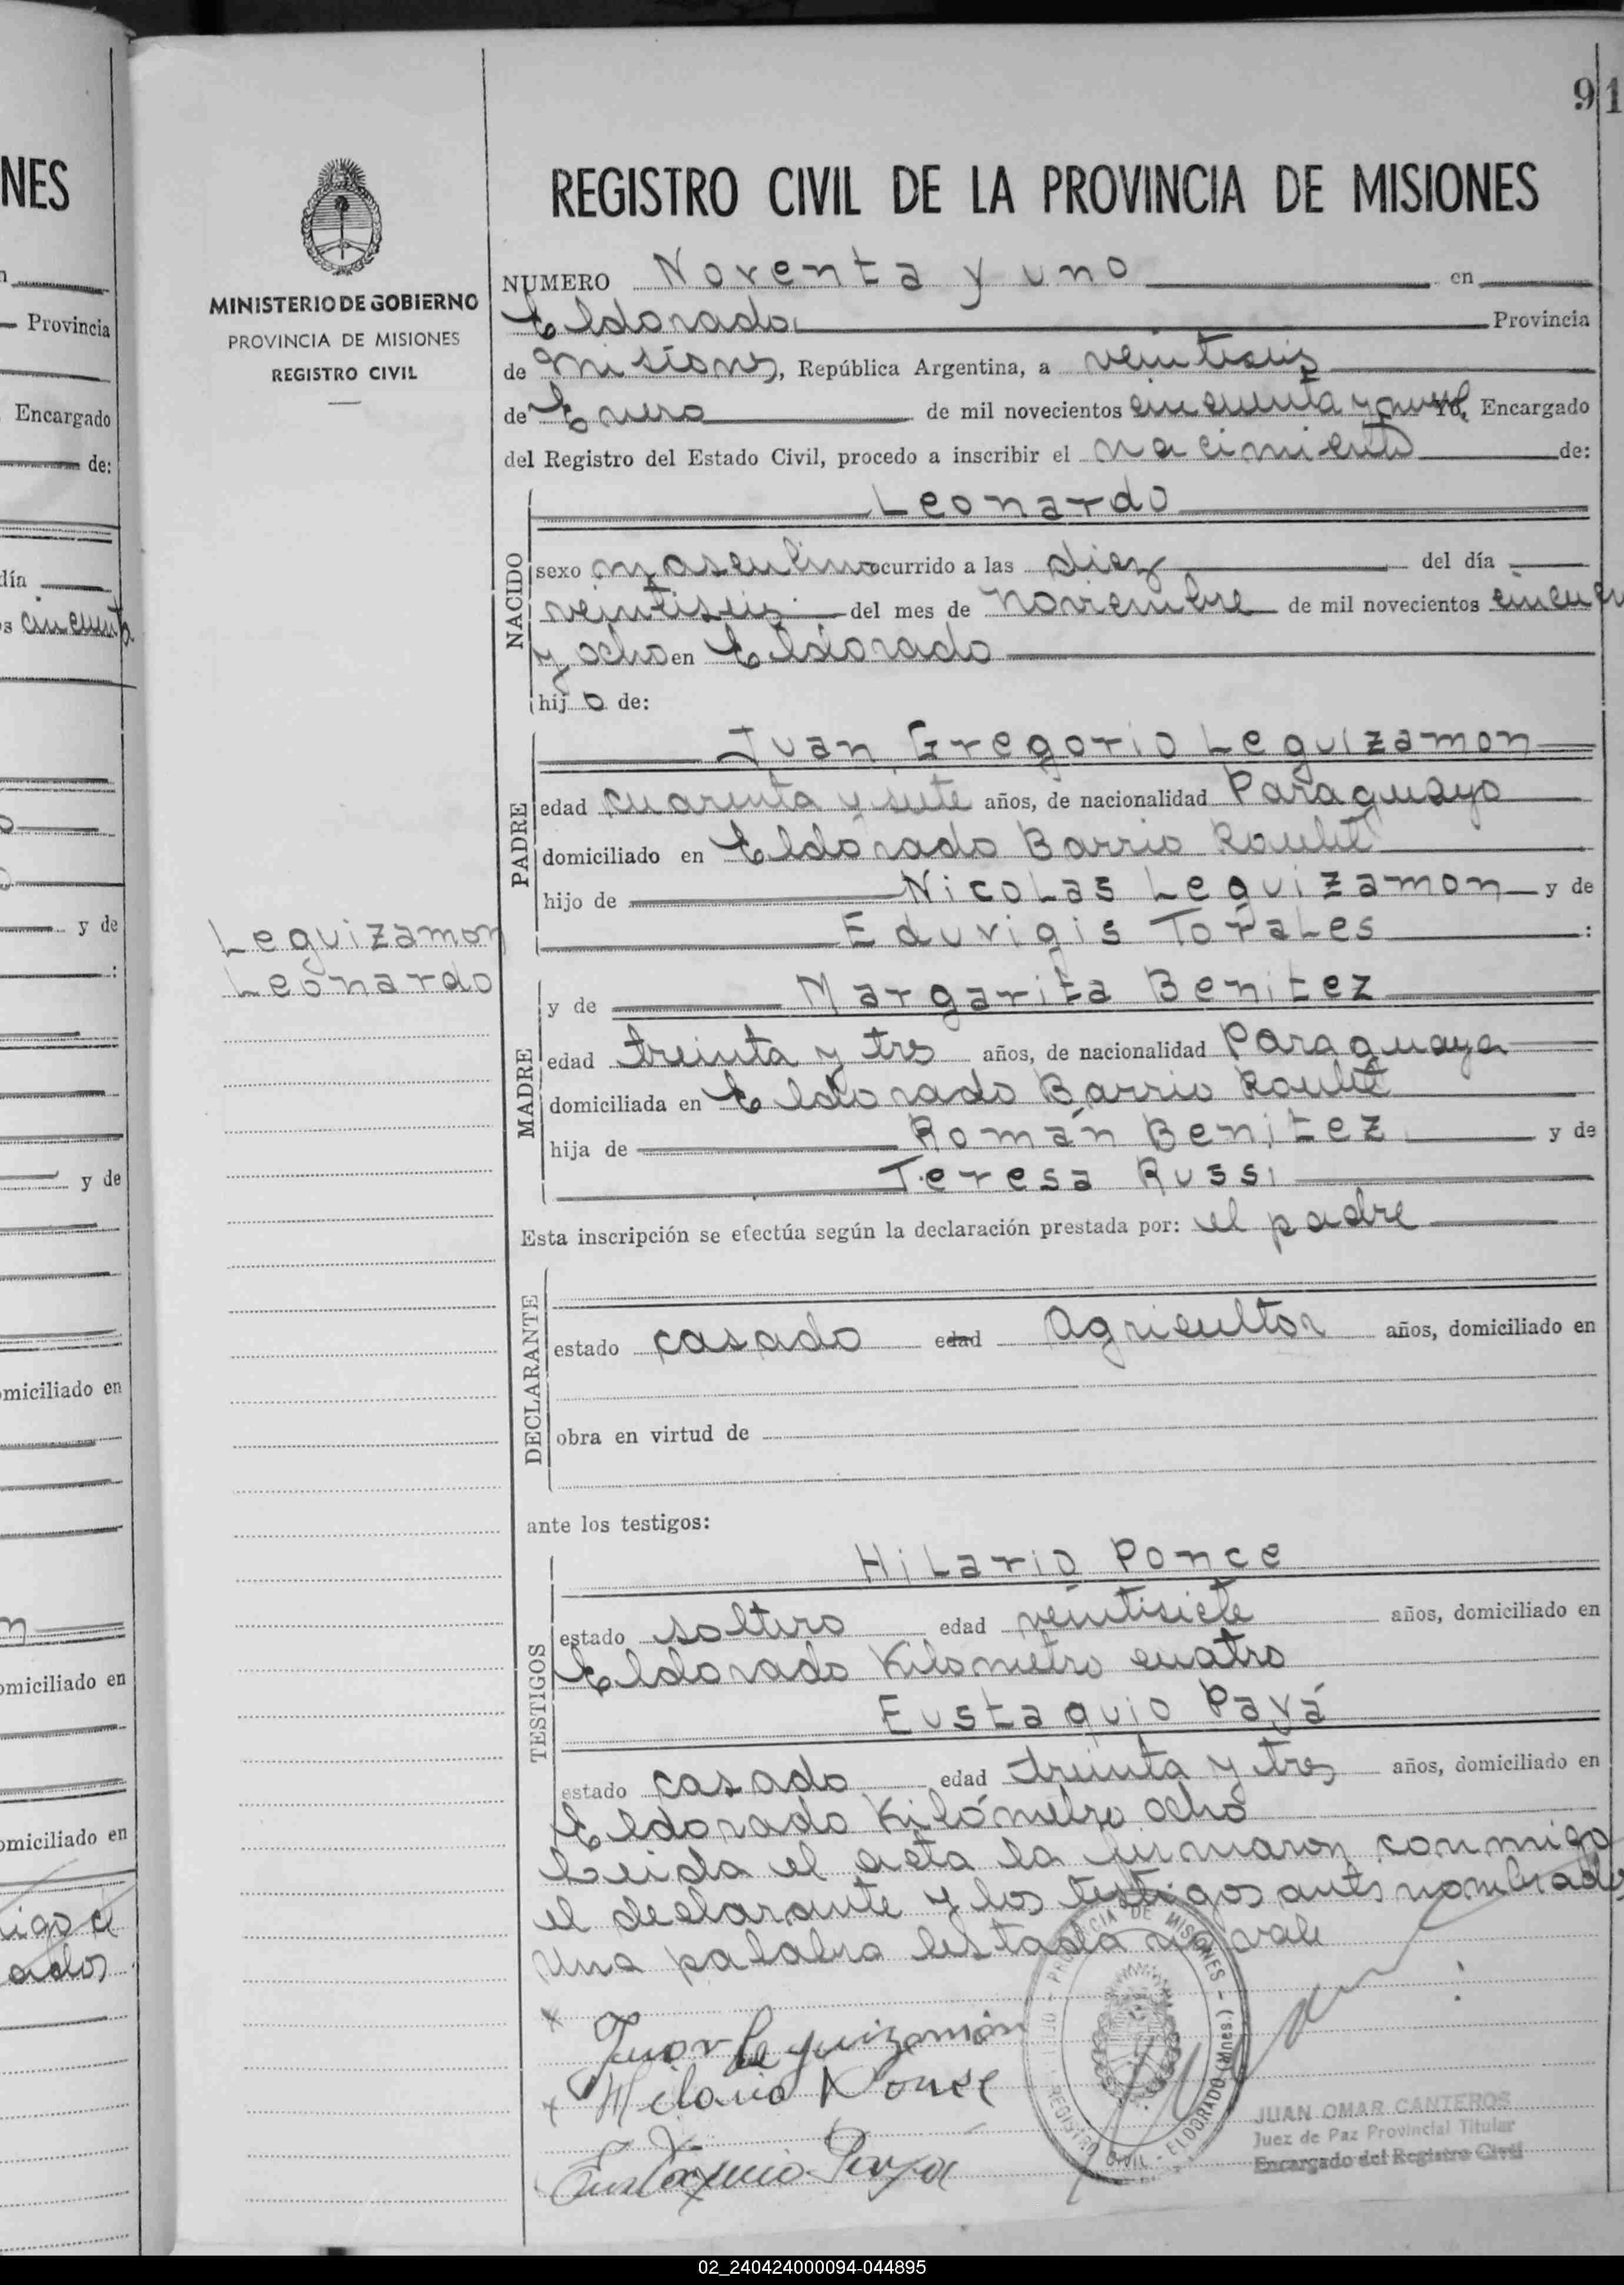 91
NES
REGISTRO CIVIL DE LA PROVINCIA DE MISIONES
MINISTERIO DE GOBIERNO
PROVINCIA DE MISIONES
REGISTRO CIVIL
NUMERO Noventa y uno en
Eldorado Provincia
de Misiones, República Argentina, a veintiseis
de Enero de mil novecientos cincuenta y nueve Yo, Encargado
del Registro del Estado Civil, procedo a inscribir el nacimiento de:
NACIDO
Leonardo
sexo masculino ocurrido a las diez del día
veintiseis del mes de Noviembre de mil novecientos cincuen
y ocho en Eldorado
hijo de:
PADRE
Juan Gregorio Leguizamon
edad cuarenta y siete años, de nacionalidad Paraguayo
domiciliado en Eldorado Barrio
hijo de Nicolas Leguizamon y de
Eduvigis Torales :
Leguizamon
Leonardo
MADRE
y de Margarita Benitez
edad treinta y tres años, de nacionalidad Paraguaya
domiciliada en Eldorado Barrio
hija de Román Benitez y de
Teresa Russi
Esta inscripción se efectúa según la declaración prestada por: el padre
DECLARANTE
estado casado edad Agricultor años, domiciliado en
obra en virtud de
ante los testigos:
TESTIGOS
Hilario Ponce
estado soltero edad veintisiete años, domiciliado en
Eldorado Kilometro cuatro
Eustaquio Payá
estado casado edad treinta y tres años, domiciliado en
Eldorado Kilómetro ocho
Leida el acta la firmaron conmigo
el declarante y los testigos antes nombrados
Una palabra testada no vale
Juan Leguizamón
Hilario Ponce
Eustaquio Paya
PROVINCIA DE MISIONES - REGISTRO CIVIL - ELDORADO (Mnes.)
JUAN OMAR CANTEROS
Juez de Paz Provincial Titular
Encargado del Registro Civil
Provincia
Encargado
de:
día
s cincuenta
y de
:
y de
omiciliado en
omiciliado en
omiciliado en
ados
02_240424000094-044895